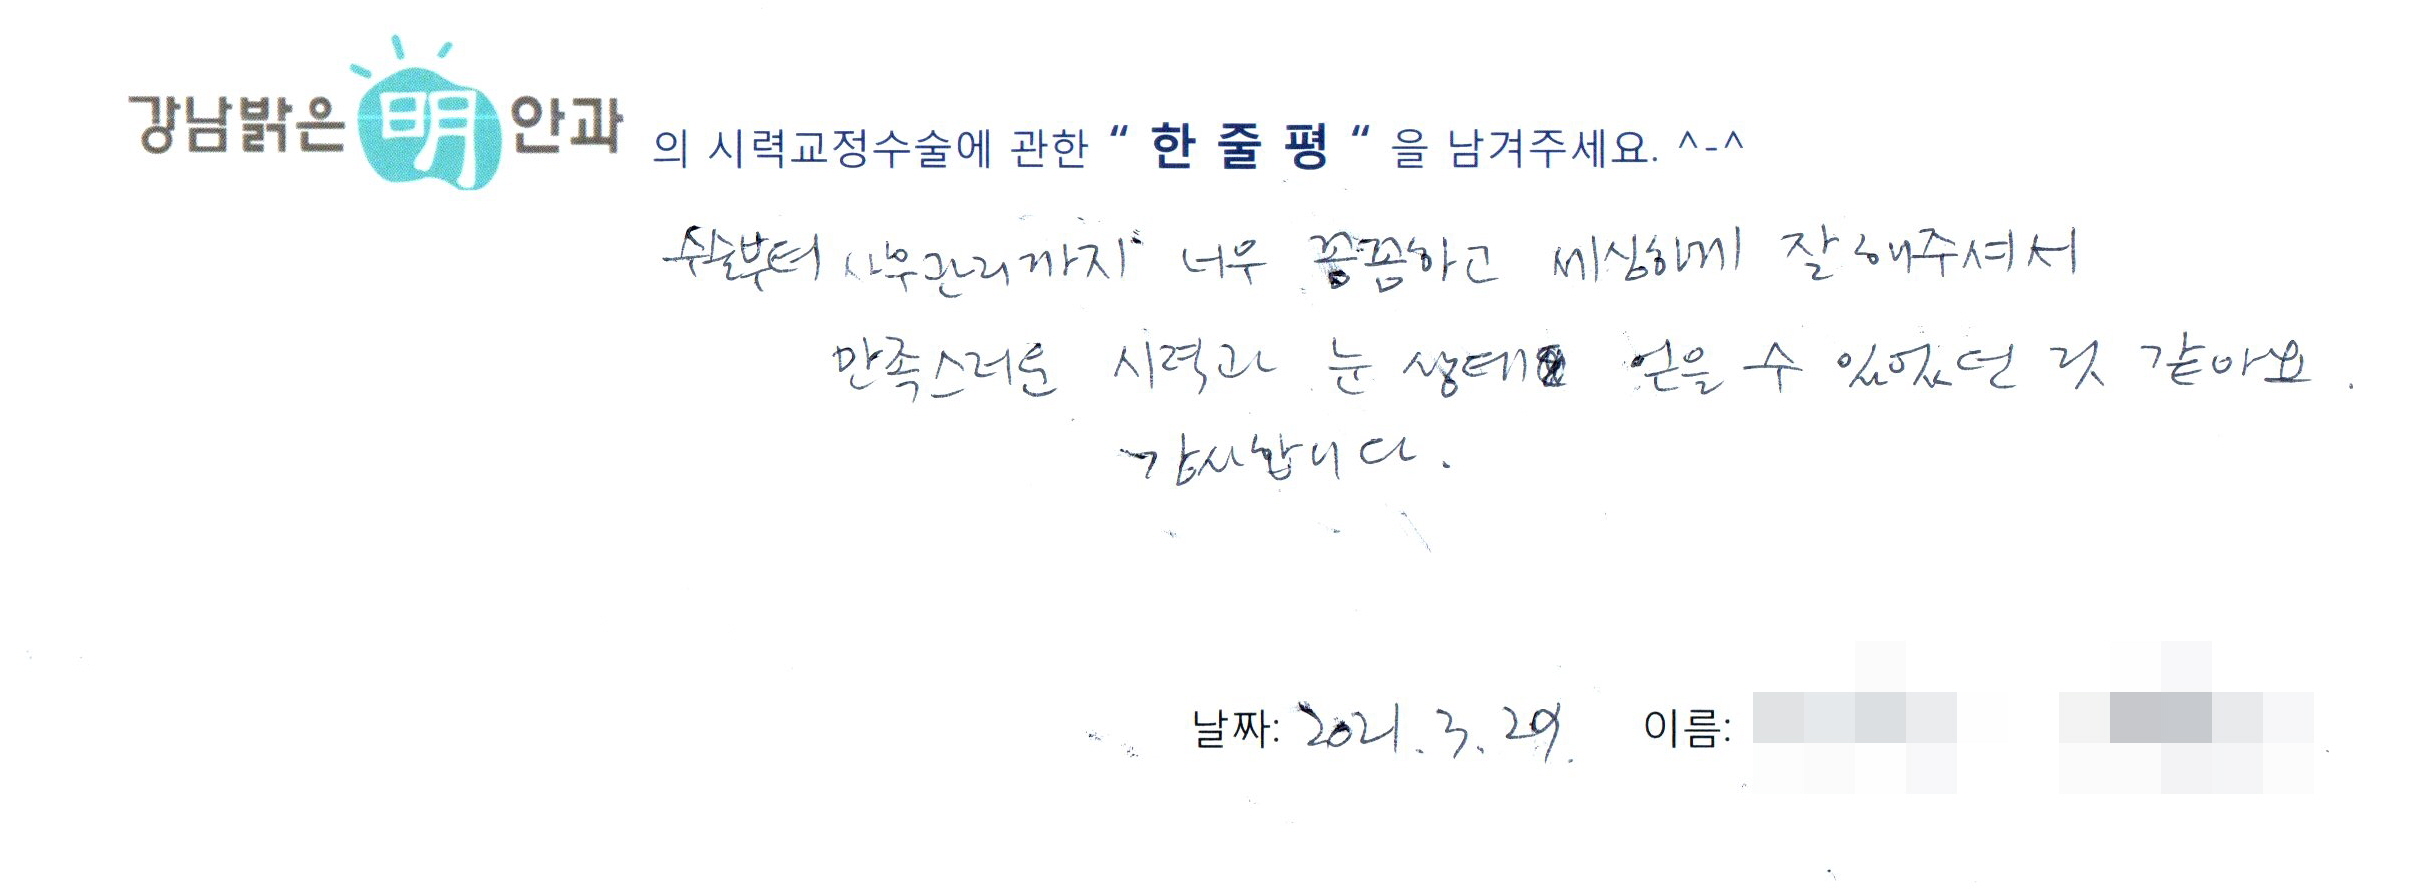 강남밝은 明 안과 의 시력교정수술에 관한 “ 한 줄 평 “ 을 남겨주세요. ^-^
수술부터 사후관리까지 너무 꼼꼼하고 세심하게 잘해주셔서
만족스러운 시력과 눈 상태 얻을 수 있었던 것 같아요.
감사합니다.
날짜: 2021. 3. 29. 이름: